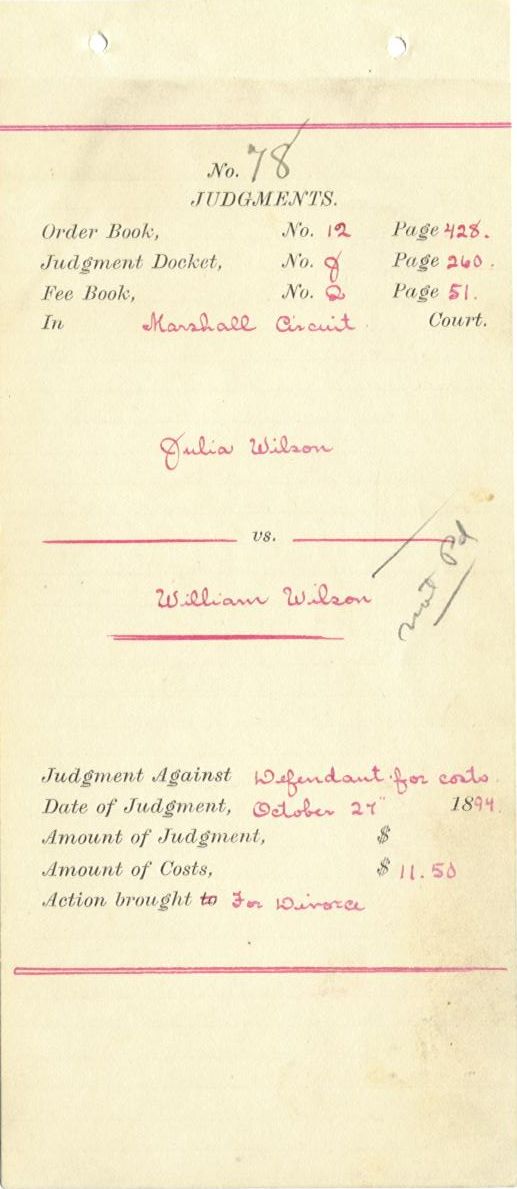 No. 78
JUDGMENTS.
Order Book, No. 12 Page 428.
Judgment Docket, No. 8 Page 260.
Fee Book, No. 2 Page 51.
In Marshall Circuit Court.
Julia Wilson
vs.
William Wilson
not Pd
Judgment Against Defendant for costs.
Date of Judgment, October 27" 1894.
Amount of Judgment, $
Amount of Costs, $ 11.50
Action brought to For Divorce